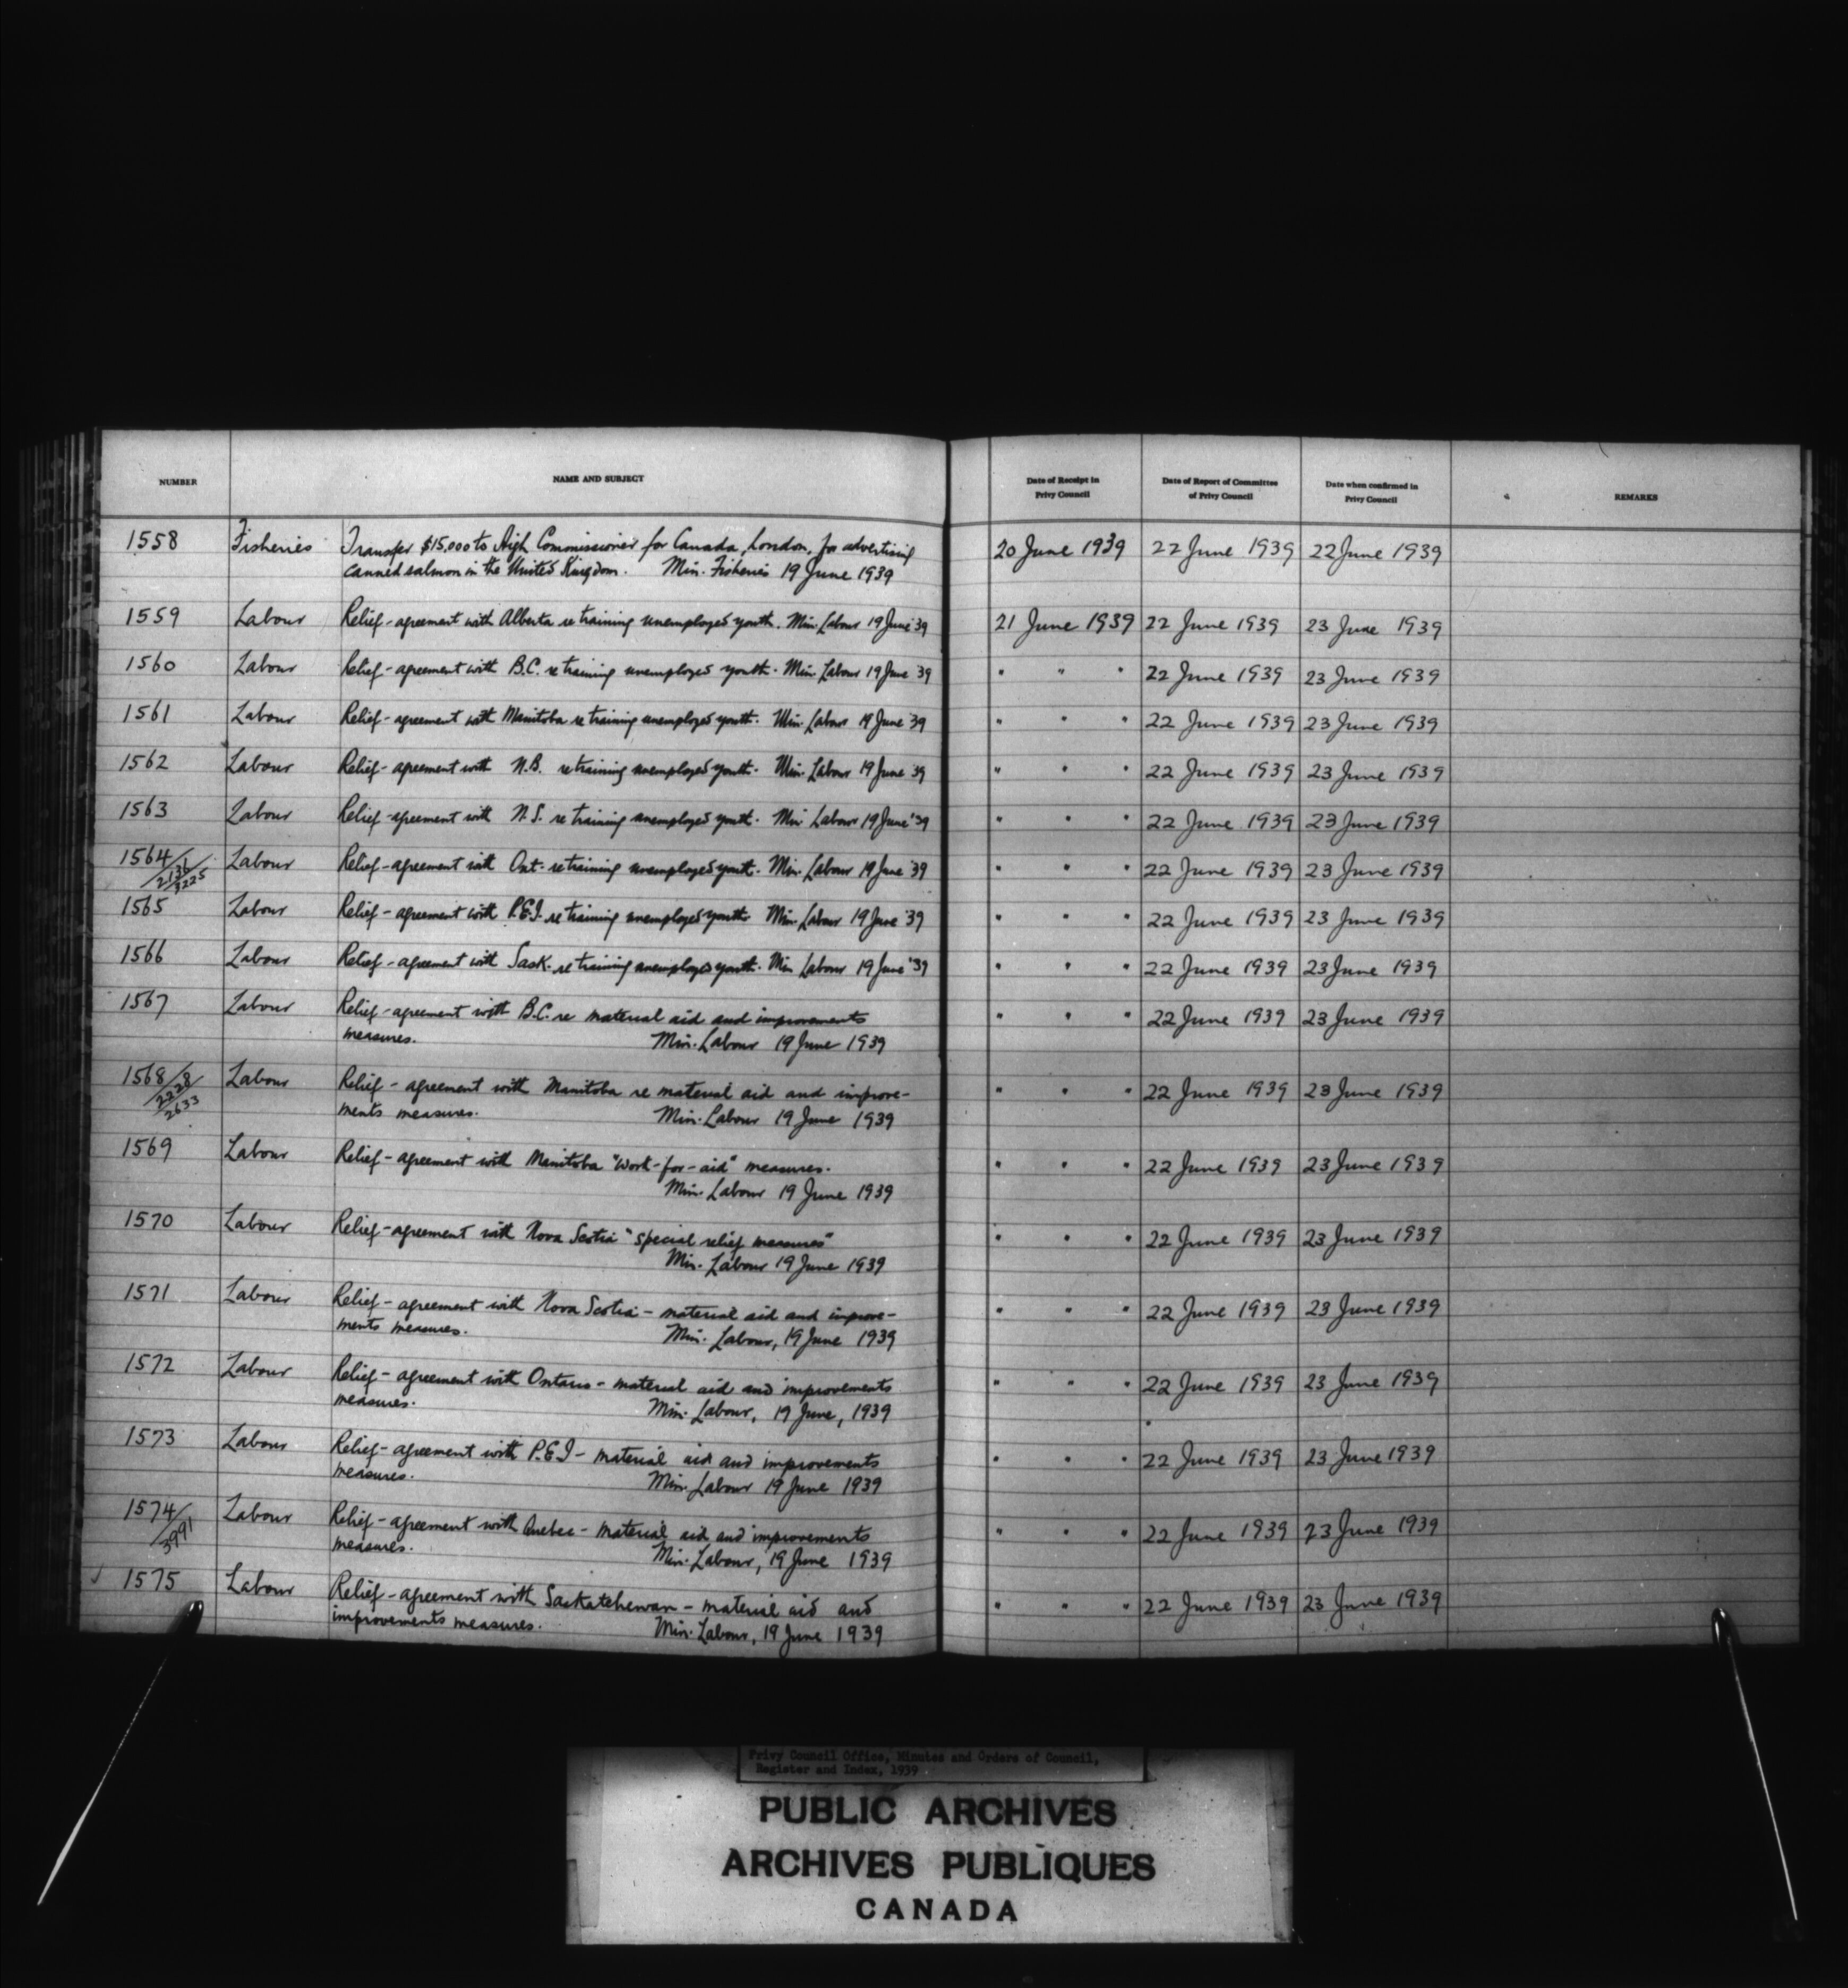 NUMBER NAME AND SUBJECT Date of Receipt in Privy Council Date of Report of Committee of Privy Council Date when confirmed in Privy Council REMARKS
1558 Fisheries Transfer $15,000 to High Commissioner for Canada, London, for advertising 20 June 1939 22 June 1939 22 June 1939
canned salmon in the United Kingdom. Min. Fisheries 19 June 1939
1559 Labour Relief - agreement with Alberta re training unemployed youth. Min. Labour 19 June '39 21 June 1939 22 June 1939 23 June 1939
1560 Labour Relief - agreement with B.C. re training unemployed youth. Min. Labour 19 June '39 " " " 22 June 1939 23 June 1939
1561 Labour Relief - agreement with Manitoba re training unemployed youth. Min. Labour 19 June '39 " " " 22 June 1939 23 June 1939
1562 Labour Relief - agreement with N.B. re training unemployed youth. Min. Labour 19 June '39 " " " 22 June 1939 23 June 1939
1563 Labour Relief - agreement with N.S. re training unemployed youth. Min. Labour 19 June '39 " " " 22 June 1939 23 June 1939
1564 Labour Relief - agreement with Ont. re training unemployed youth. Min. Labour 19 June '39 " " " 22 June 1939 23 June 1939
2136
3225
1565 Labour Relief - agreement with P.E.I. re training unemployed youth. Min. Labour 19 June '39 " " " 22 June 1939 23 June 1939
1566 Labour Relief - agreement with Sask. re training unemployed youth. Min. Labour 19 June '39 " " " 22 June 1939 23 June 1939
1567 Labour Relief - agreement with B.C. re material aid and improvements " " " 22 June 1939 23 June 1939
measures. Min. Labour 19 June 1939
1568 Labour Relief - agreement with Manitoba re material aid and improve- " " " 22 June 1939 23 June 1939
2228
2633
ments measures. Min. Labour 19 June 1939
1569 Labour Relief - agreement with Manitoba "work-for-aid" measures. " " " 22 June 1939 23 June 1939
Min. Labour 19 June 1939
1570 Labour Relief - agreement with Nova Scotia "special relief measures" " " " 22 June 1939 23 June 1939
Min. Labour 19 June 1939
1571 Labour Relief - agreement with Nova Scotia - material aid and improve- " " " 22 June 1939 23 June 1939
ments measures. Min. Labour, 19 June 1939
1572 Labour Relief - agreement with Ontario - material aid and improvements " " " 22 June 1939 23 June 1939
measures. Min. Labour, 19 June, 1939
1573 Labour Relief - agreement with P.E.I - material aid and improvements " " " 22 June 1939 23 June 1939
measures. Min. Labour 19 June 1939
1574 Labour Relief - agreement with Quebec - material aid and improvements " " " 22 June 1939 23 June 1939
3991
measures. Min. Labour, 19 June 1939
✓ 1575 Labour Relief - agreement with Saskatchewan - material aid and " " " 22 June 1939 23 June 1939
improvements measures. Min. Labour, 19 June 1939
Privy Council Office, Minutes and Orders of Council,
Register and Index, 1939
PUBLIC ARCHIVES
ARCHIVES PUBLIQUES
CANADA